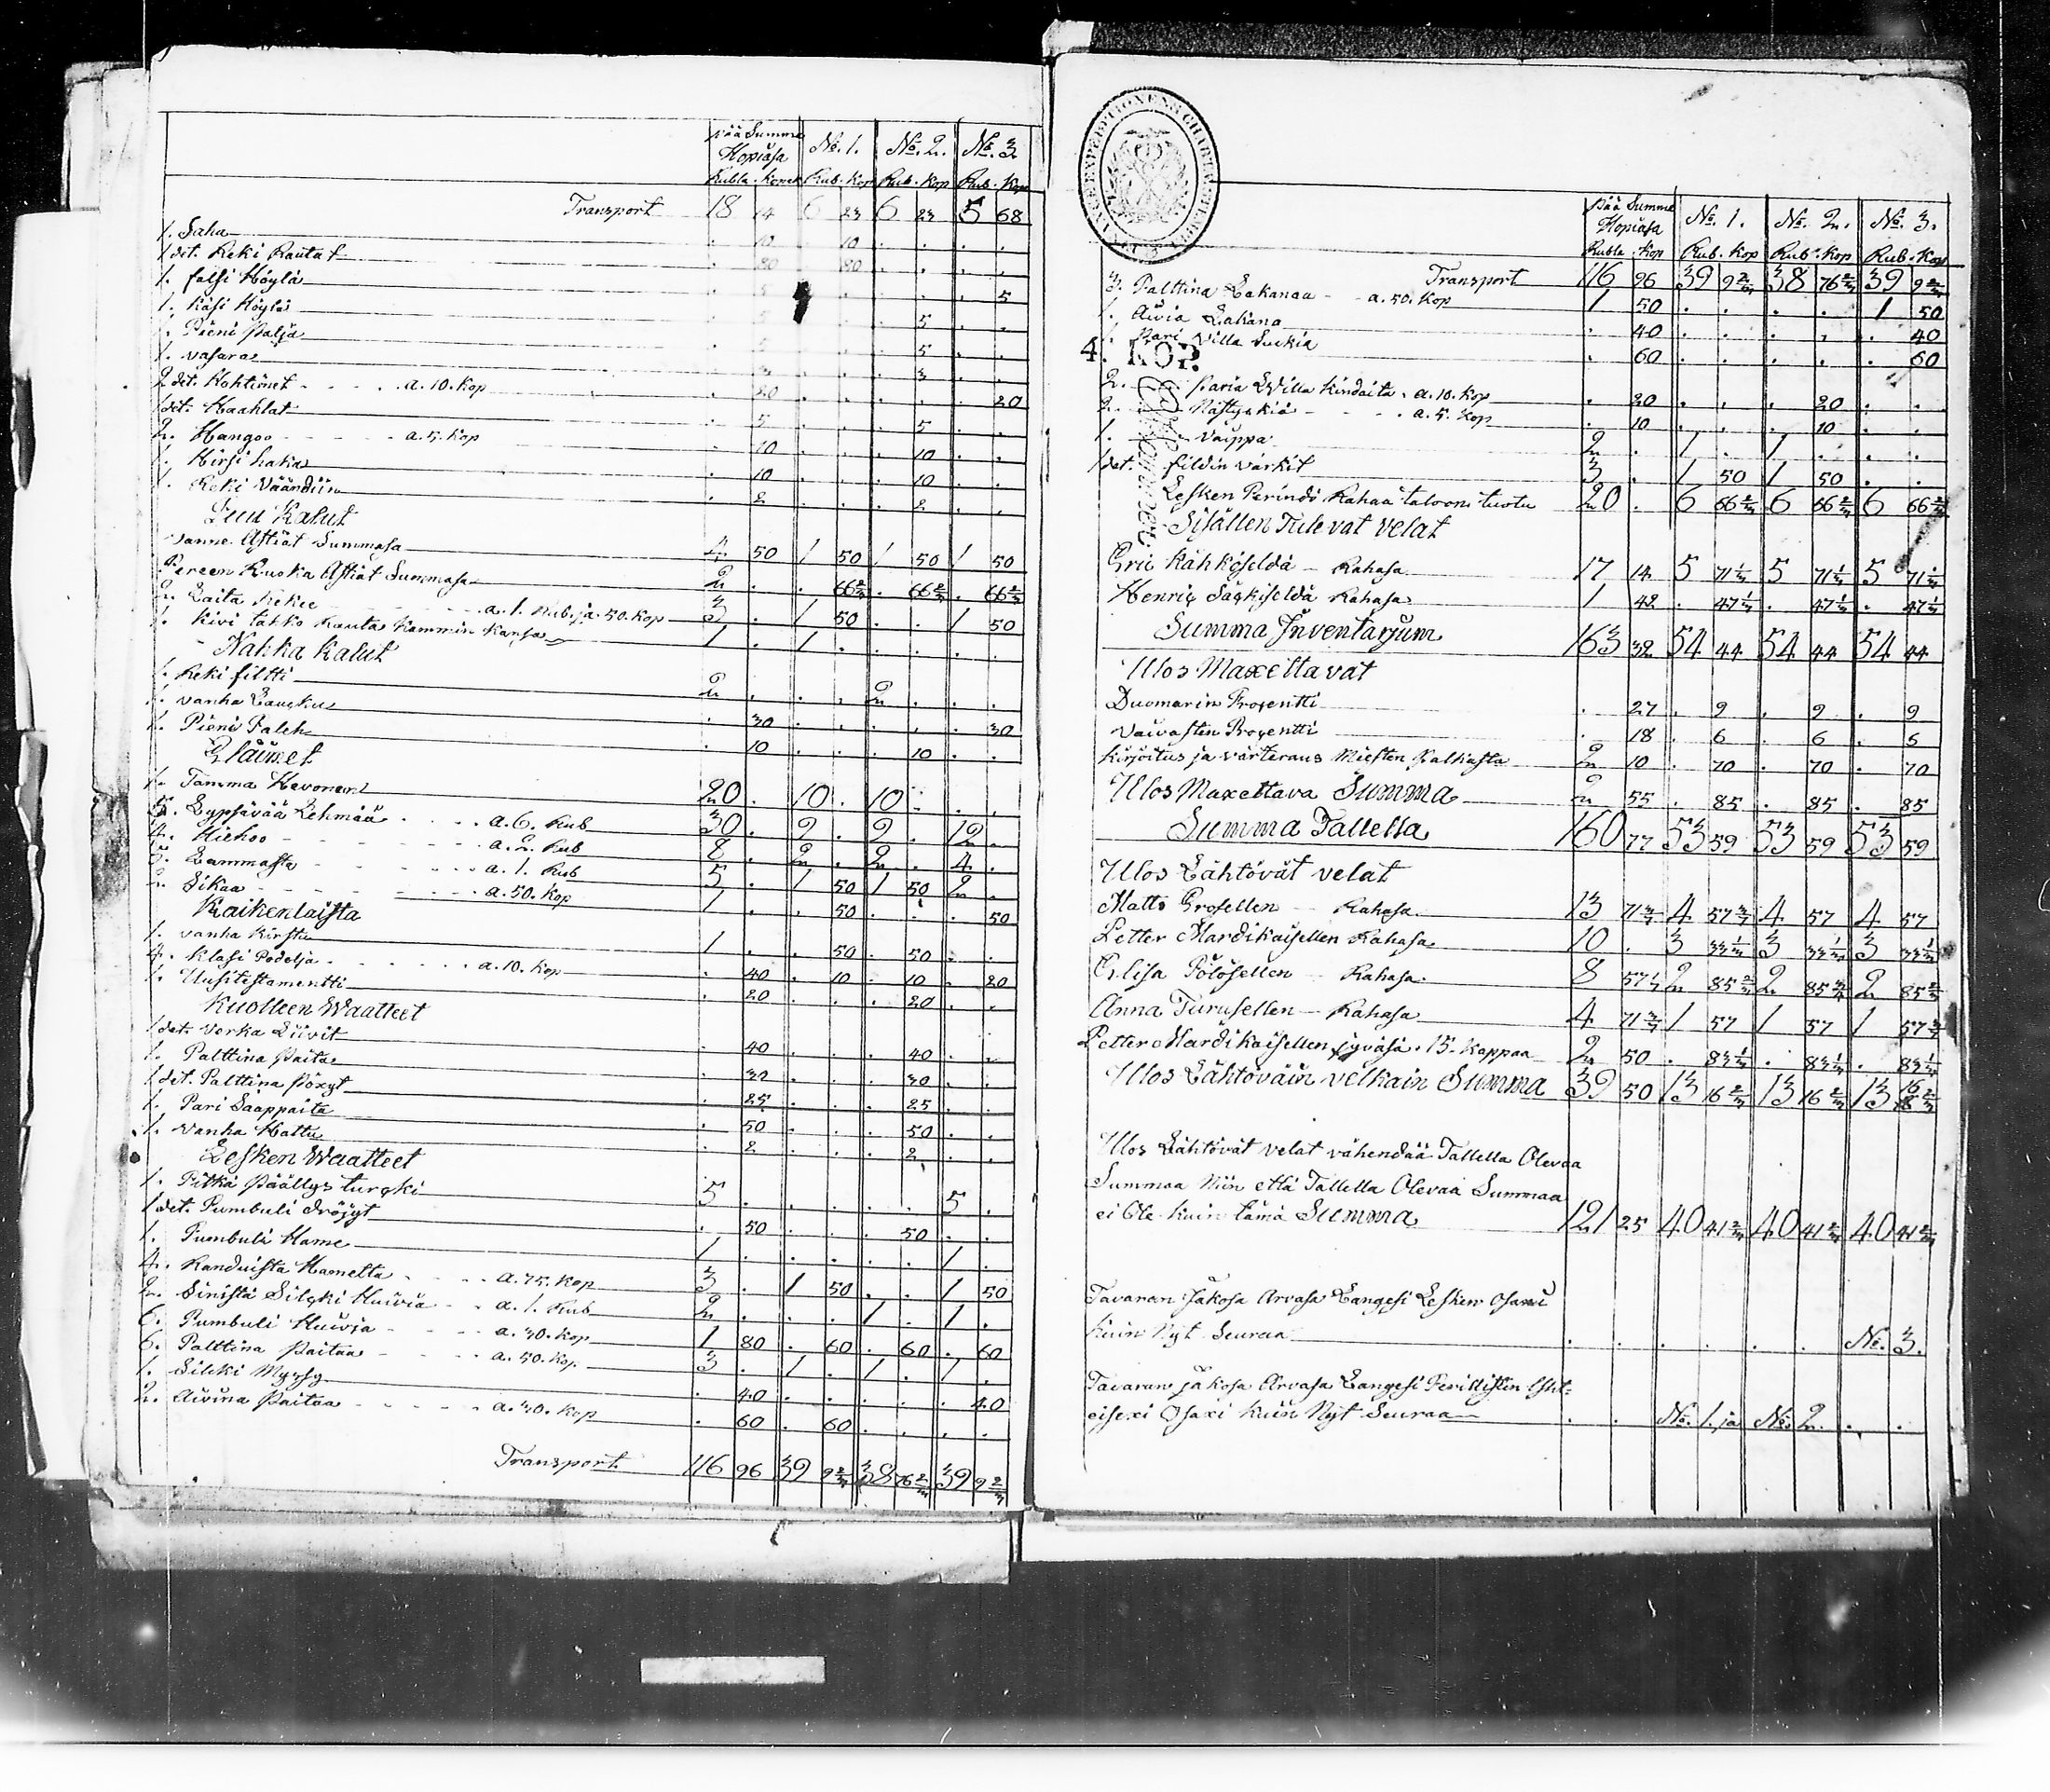 pää Summa No. 1. No. 2. No. 3.
Hopiasa
Rubla Kopek Rub. Kop Rub. Kop Rub. Kop
Transport 18 14 6 23 6 23 5 68
1. Saha . 10 . 10 . . . .
1 det. Reki Rautat . 80 . 80 . . . .
1. falsi Höylä . 5 . . . . . 5
1. Käsi Höylä . 5 . . . 5 . .
1. Pieni Palja . 5 . . . 5 . .
1. vasara . 3 . . . 3 . .
2 det. Kohtimet a. 10. Kop . 20 . . . . . 20
1 det. Haahlat . 5 . . . 5 . .
2. Hangoo a. 5. Kop . 10 . . . 10 . .
1. Hirsi haka . 10 . . . 10 . .
1. Reki Väändiin . 2 . . . 2 . .
Puu Kalut
vanne Astiat Summasa 4 50 1 50 1 50 1 50
Pereen Ruoka Astiat Summasa 2 . . 66 2/3 . 66 2/3 . 66 2/3
2. Laita Rekee a. 1. Rub. ja. 50. Kop 3 . 1 50 . . 1 50
1. Kivi takko Rauta Kammin Kansa 1 . 1 . . . . .
Nahka Kalut
1. Reki filtti 2 . . . 2 . . .
1. vanha Laucku . 30 . . . . . 30
1. Pieni Palch . 10 . . . 10 . .
Eläimet
1. Tamma Hevonen 20 . 10 . 10 . . .
5. Lypsävää Lehmää a. 6. Rub 30 . 9 . 9 . 12 .
4. Hiehoo a. 2. Rub 8 . 2 . 2 . 4 .
5. Lammasta a. 1. Rub 5 . 1 50 1 50 2 .
2. Sikaa a. 50. Kop 1 . . 50 . . . 50
Kaikenlaista
1. vanha Kirstu 1 . . 50 . 50 . .
4. Klasi Podelja a. 10. Kop . 40 . 10 . 10 . 20
1. Uusitestamentti . 20 . . . 20 . .
Kuolleen Waatteet
1 det. Verka Liivit . 40 . . . 40 . .
1. Palttina Paita . 30 . . . 30 . .
1 det. Palttina Pöxyt . 25 . . . 25 . .
1. Pari Saappaita . 50 . . . 50 . .
1. vanha Hattu . 2 . . . 2 . .
Lesken Waatteet
1. Pitkä Päällys turcki 5 . . . . . 5 .
1 det. Pumbuli dröijyt . 50 . . . 50 . .
1. Pumbuli Hame 1 . . . . . 1 .
4. Randuista Hametta a. 75. Kop 3 . 1 50 . . 1 50
2. Sinistä Silcki Huivia a. 1. Rub 2 . . . 1 . 1 .
6. Pumbuli Huivja a. 30. Kop 1 80 . 60 . 60 . 60
6. Palttina Paitaa a. 50. Kop 3 . 1 . 1 . 1 .
1. Silcki Myssy . 40 . . . . . 40
2. Aivina Paitaa a. 30. Kop . 60 . 60 . . . .
Transport 116 96 39 9 2/3 38 76 2/3 39 9 2/3
pää Summa No. 1. No. 2. No. 3.
Hopiasa
Rubla Kop Rub. Kop Rub. Kop Rub. Kop
Transport 116 96 39 9 2/3 38 76 2/3 39 9 2/3
3. Palttina Lakanaa a. 50. Kop 1 50 . . . . 1 50
1. Aivia Lakana . 40 . . . . . 40
1. Pari Villa Sukia . 60 . . . . . 60
4. KOP.
2. Paria Willa Kindaita a. 10. Kop . 20 . . . 20 . .
2. Nästyckiä a. 5. Kop . 10 . . . 10 . .
1. Vaippa 2 . 1 . 1 . . .
1 det. fildin värkit 3 . 1 50 1 50 . .
Lesken Perindö Rahaa talooni tuotu 20 . 6 66 2/3 6 66 2/3 6 66 2/3
Sisällen Tulevat velat
Eric Kähköseldä Rahasa 17 14 5 71 1/3 5 71 1/3 5 71 1/3
Henric Jäskiseldä Rahasa 1 42 . 47 1/3 . 47 1/3 . 47 1/3
Summa Inventarjum 163 32 54 44 54 44 54 44
Ulos Maxettavat
Duomarin Procentti . 27 . 9 . 9 . 9
Vaivasten Procentti . 18 . 6 . 6 . 6
Kirjoitus ja värteraus Miesten Palkasta 2 10 . 70 . 70 . 70
Ulos Maxettava Summa 2 55 . 85 . 85 . 85
Summa Tallella 160 77 53 59 53 59 53 59
Ulos Lähtövät velat
Matti Grosellen Rahasa 13 71 3/7 4 57 3/7 4 57 4 57
Petter Mardikaisellen Rahasa 10 . 3 33 1/3 3 33 1/3 3 33 1/3
Elisa Pölösellen Rahasa 8 57 1/7 2 85 2/3 2 85 2/3 2 85 2/3
Anna Turusellen Rahasa 4 71 3/7 1 57 1 57 1 57 3/7
Petter Mardikaisellen jyväsä. 15. Kappaa 2 50 . 83 1/3 . 83 1/3 . 83 1/3
Ulos Lähtöväin velkain Summa 39 50 13 16 2/3 13 16 2/3 13 16 2/3
Ulos Lähtövät velat vähendää Tallella Olevaa
Summaa Niin että Tallella Olevaa Summaa
ei Ole Kuin tämä Summa 121 25 40 41 2/3 40 41 2/3 40 41 2/3
Tavaran Jakosa Arvasa Langesi Lesken Osaxi
Kuin Nyt Seuraa . . . . . . No. 3.
Tavaran jakosa Arvasa Langesi Perillisten Yht-
eisexi Osaxi Kuin Nyt Seuraa . . No. 1. ja No. 2. . .